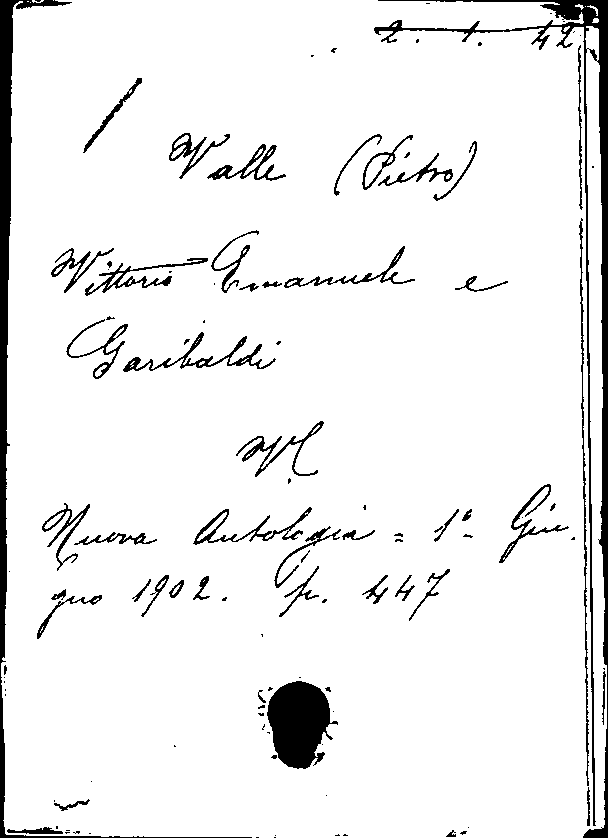 2. 1. 42
Valle (Pietro)
Vittorio Emanuele e
Garibaldi
V.
Nuova Antologia = 1º- Giu.
gno 1902. p. 447